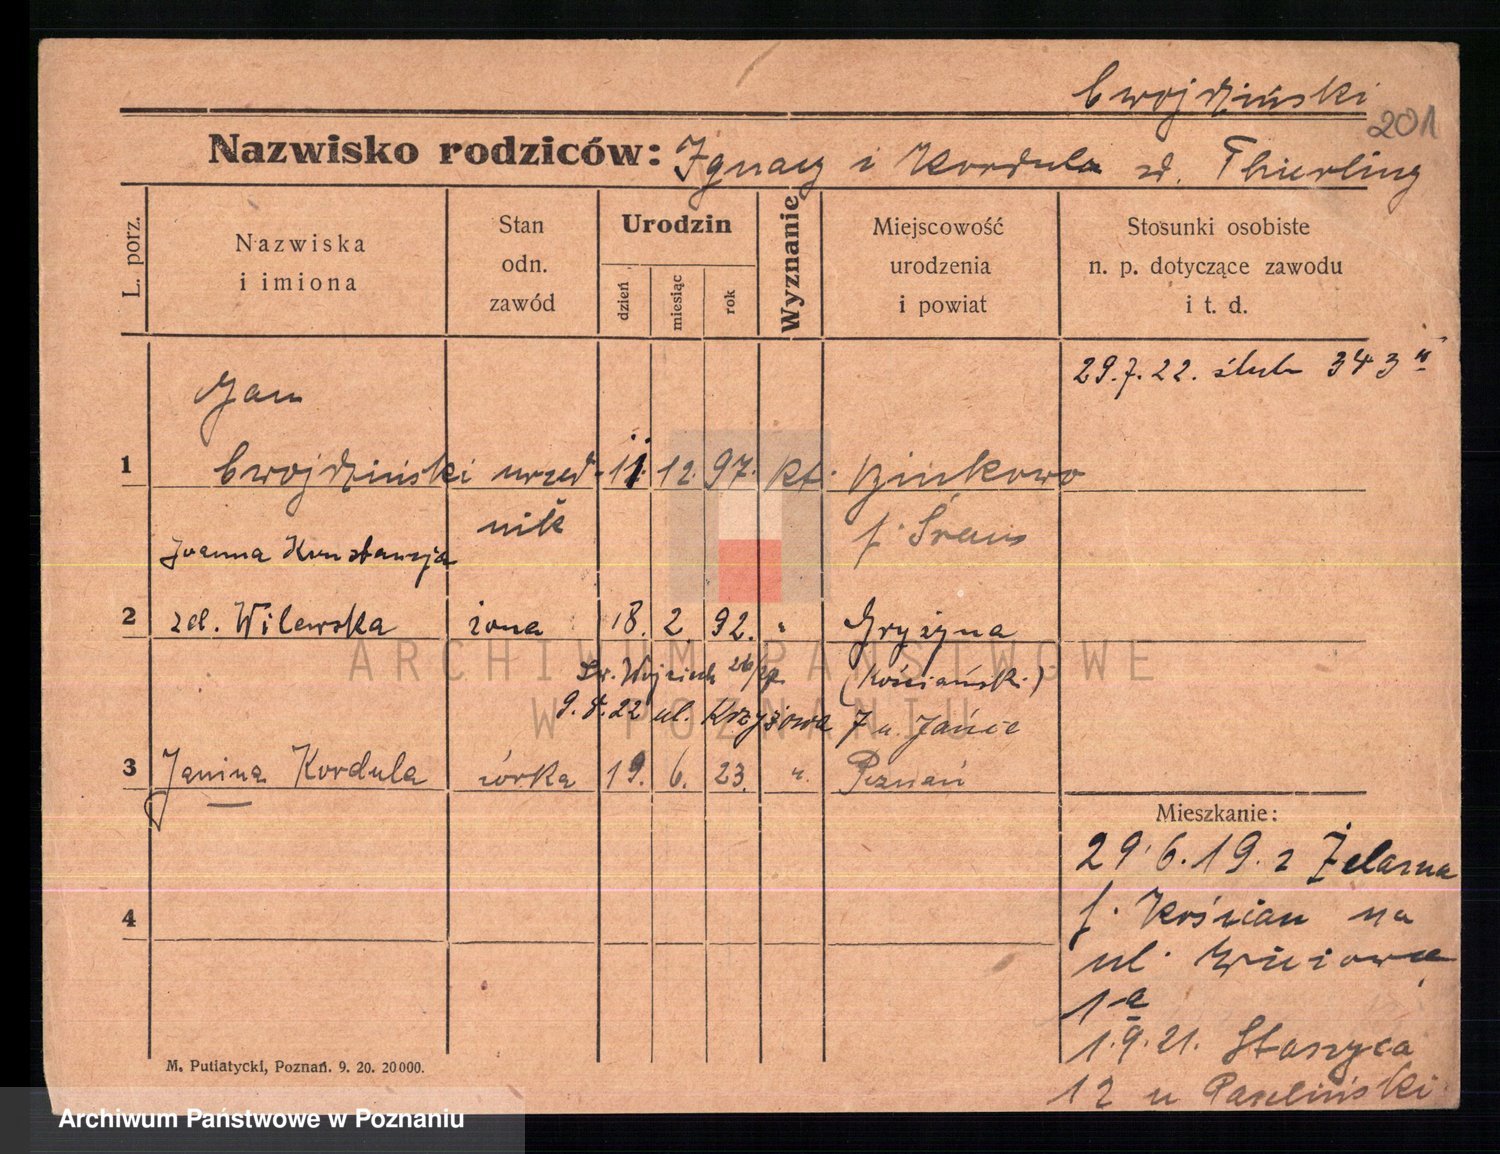 Cwojdziński
201
Nazwisko rodziców: Ignacy i Kordula zd. Thierling
L. porz.
Nazwiska
i imiona
Stan
odn.
zawód
Urodzin
dzień
miesiąc
rok
Wyznanie
Miejscowość
urodzenia
i powiat
Stosunki osobiste
n. p. dotyczące zawodu
i t. d.
29.7.22. ślub 343
Jan
1 Cwojdziński urzęd- 11. 12. 97. kt.
nik p. Śrem
Joanna Konstancja
2 zd. Wilewska żona 18. 2. 92. " Gryżyna
Św. Wojciech (Kościański)
9.8.22 ul. Krzyżowa 7 u Jańce
3 Janina Kordula córka 19. 6. 23. " Poznań
Mieszkanie:
29.6.19. z Żelazna
4 p. Kościan na
ul.
1a
1.9.21. Staszyca
12 u
M. Putiatycki, Poznań. 9. 20. 20000.
ARCHIWUM PAŃSTWOWE
W POZNANIU
Archiwum Państwowe w Poznaniu